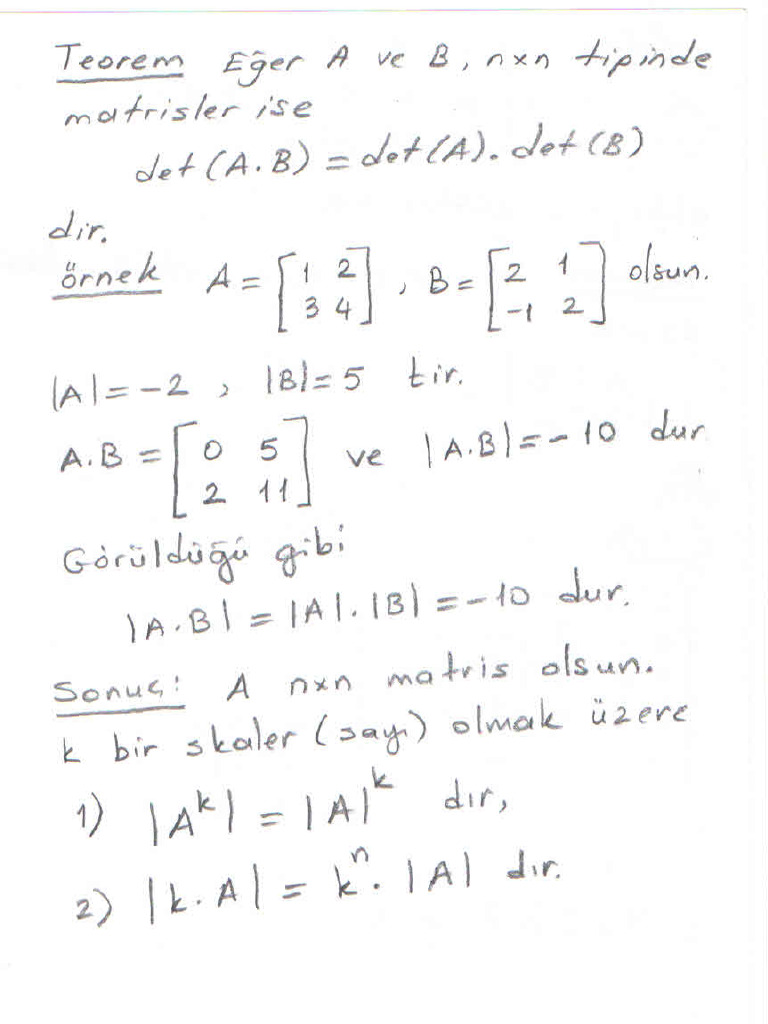 Teorem Eğer A ve B, nxn tipinde
matrisler ise
det(A.B) = det(A). det(B)
dir.
örnek A = [1 2 3 4], B = [2 1 -1 2] olsun.
|A| = -2, |B| = 5 tir.
A.B = [0 5 2 11] ve |A.B| = -10 dur
Görüldüğü gibi
|A.B| = |A|.|B| = -10 dur.
Sonuç: A nxn matris olsun.
k bir skaler (sayı) olmak üzere
1) |A^k| = |A|^k dır,
2) |k.A| = k^n. |A| dır.